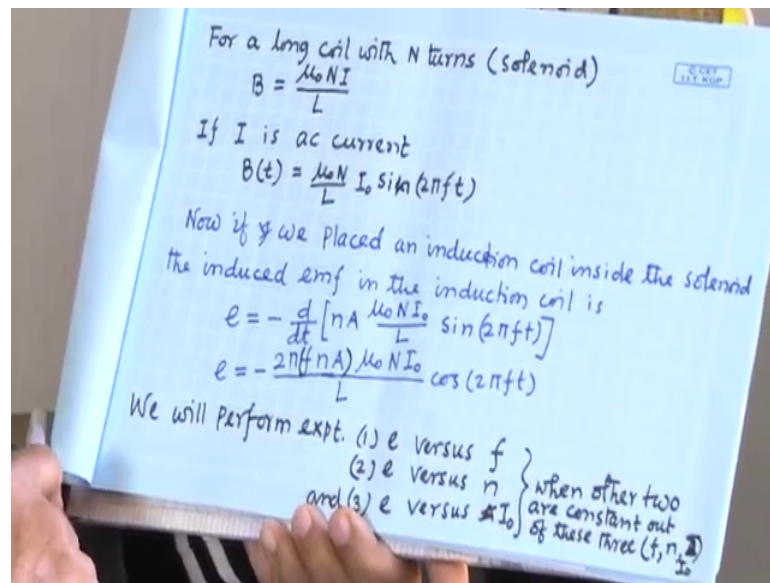 For a long coil with N turns (solenoid)
© CET
I.I.T. KGP
B = μ₀NI / L
If I is ac current
B(t) = μ₀N / L I₀ sin(2πft)
Now if we placed an induction coil inside the solenoid
the induced emf in the induction coil is
e = - d/dt [nA μ₀NI₀ / L sin(2πft)]
e = - 2π(fnA) μ₀NI₀ / L cos(2πft)
We will perform expt. (1) e versus f
(2) e versus n } when other two
and (3) e versus I₀ are constant out
of these three (f, n, I₀)